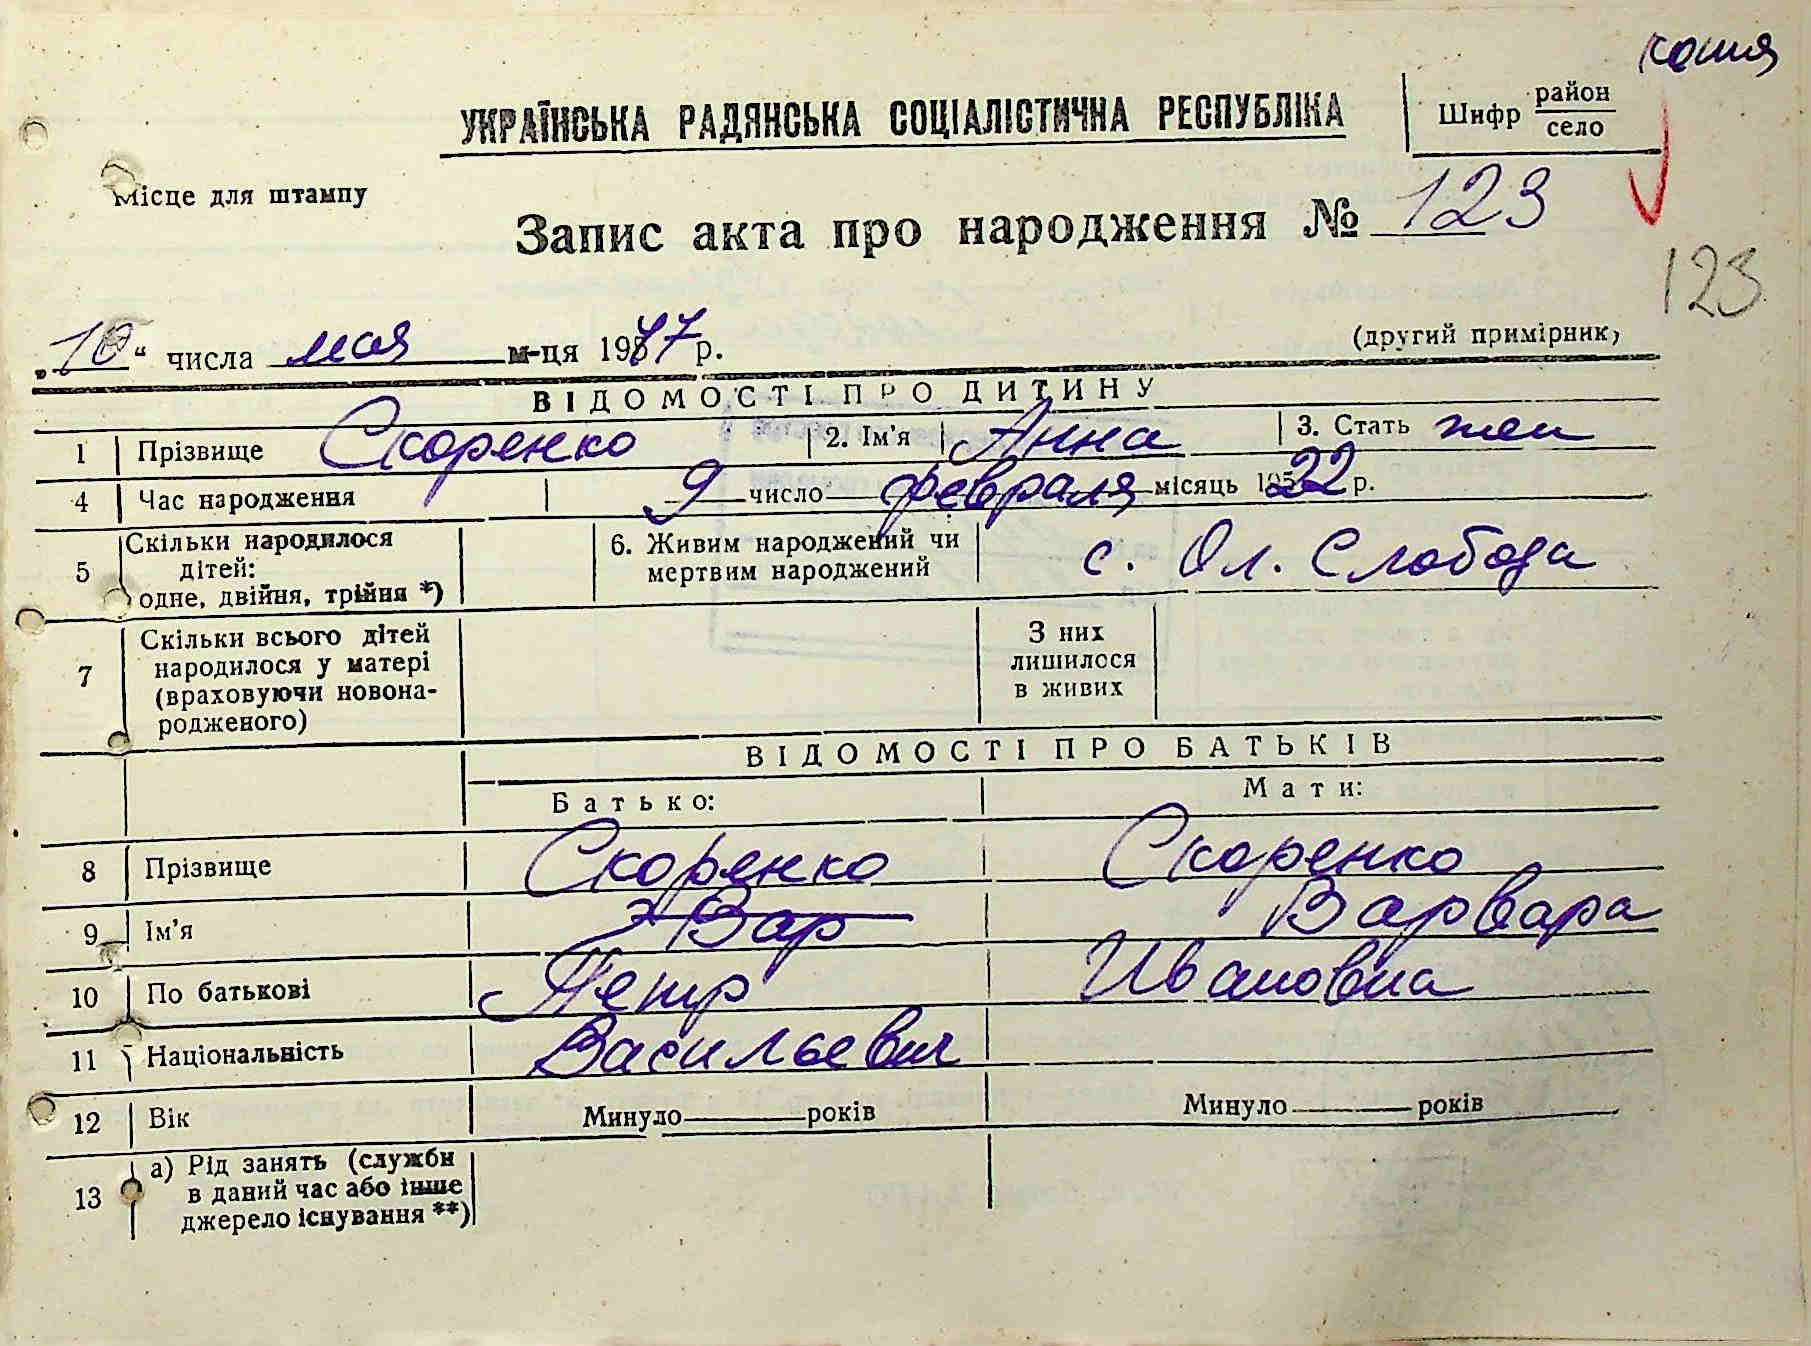 копия
УКРАЇНСЬКА РАДЯНСЬКА СОЦІАЛІСТИЧНА РЕСПУБЛІКА
Шифр район
село
Місце для штампу
Запис акта про народження № 123
123
„10“ числа мая м-ця 1977 р.
(другий примірник)
ВІДОМОСТІ ПРО ДИТИНУ
1 Прізвище Скоренко 2. Ім'я Анна 3. Стать жен
4 Час народження 9 число февраля місяць 1922 р.
5 Скільки народилося дітей: одне, двійня, трійня *) 6. Живим народжений чи мертвим народжений с. Ол. Слобода
7 Скільки всього дітей народилося у матері (враховуючи новонародженого) З них лишилося в живих
ВІДОМОСТІ ПРО БАТЬКІВ
Батько: Мати:
8 Прізвище Скоренко Скоренко
9 Ім'я Вар Варвара
10 По батькові Петр Ивановна
11 Національність Васильевич
12 Вік Минуло років Минуло років
13 а) Рід занять (служби
в даний час або інше
джерело існування **)